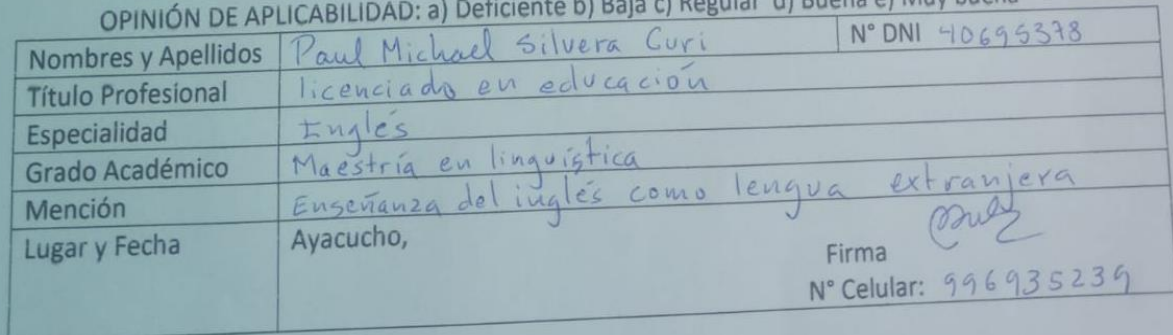 OPINIÓN DE APLICABILIDAD: a) Deficiente b) Baja c) Regular d) Buena e) Muy buena
Nombres y Apellidos Paul Michael Silvera Curi N° DNI 40695378
Título Profesional licenciado en educación
Especialidad Inglés
Grado Académico Maestría en linguística
Mención Enseñanza del inglés como lengua extranjera
Lugar y Fecha Ayacucho,
Firma
N° Celular: 996935239